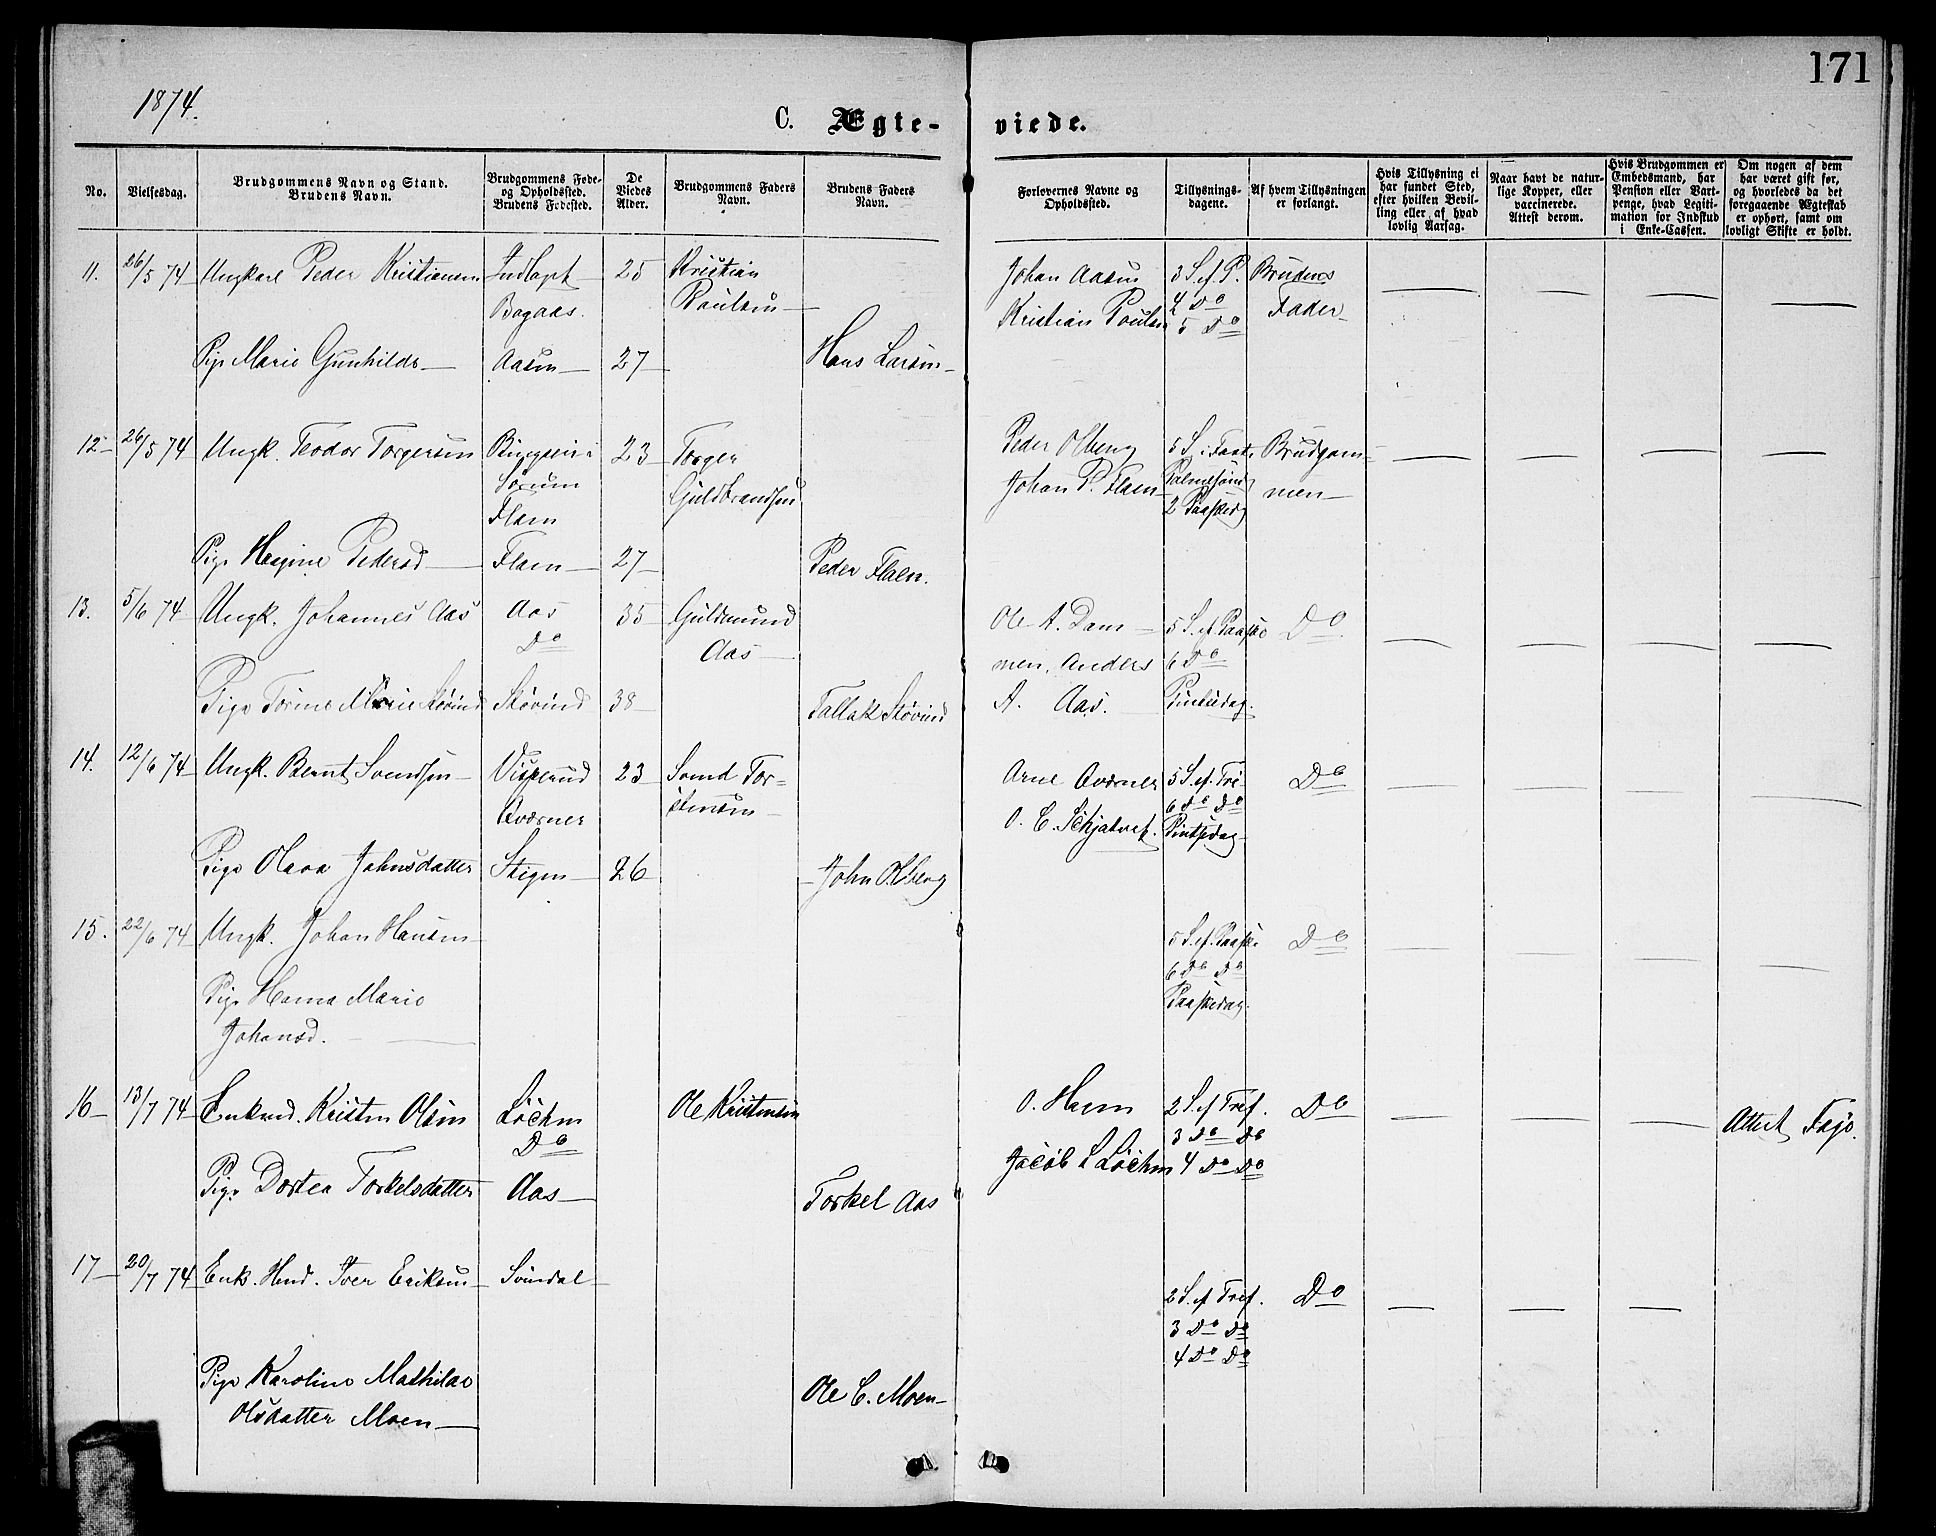 171
1874.
C. Ægte- viede.
No.
Vielsesdag.
Brudgommens Navn og Stand.
Brudens Navn.
Brudgommens Føde-
og Opholdssted.
Brudens Fødested.
De
Viedes
Alder.
Brudgommens Faders
Navn.
Brudens Faders
Navn.
Forlovernes Navne og
Opholdssted.
Tillysnings-
dagene.
Af hvem Tillysningen
er forlangt.
Hvis Tillysning ei
har fundet Sted,
efter hvilken Bevil-
ling eller af hvad
lovlig Aarsag.
Naar havt de natur-
lige Kopper, eller
vaccinerede.
Attest derom.
Hvis Brudgommen er
Embedsmand, har
Pension eller Vart-
penge, hvad Legiti-
mation for Indskud
i Enke-Cassen.
Om nogen af dem
har været gift før,
og hvorledes da det
foregaaende Ægteskab
er ophørt, samt om
lovligt Skifte er holdt.
11. 26/5 74 Ungkarl Peder Kristiansen 25 Kristian Johan Aasen 3 S. ef. P. Brudens
Bagaas. Poulsen Kristian Poulsen 4 Do Fader
5 Do
Pige Marie Gunhilds Aasen 27 Hans Larsen
12 26/5 74 Ungk. Teodor Torgersen 23 Torger Peder Olberg 5 S. i Faste Brudgom-
Sørum Guldbrandsen Johan P. Flaen Palmesønd men
Flaen 2 Paaskedg
Pige Hagine Pedersd Flaen 27 Peder Flaen.
13. 5/6 74 Ungk. Johannes Aas Aas 35 Guldmund Ole A. Dam 5 S. ef. Paaske Do
Do Aas men, Anders 6 Do
Pige Torine Marie Støvind Støvind 38 Tallak Støvind A. Aas. Pintsedag.
14. 12/6 74 Ungk. Bernt Svendsen Visperud 23 Svend Tor= Arne Qværner 5 S. ef. Do
Qværner stensen O. C. 6 Do Do
Pintsedag
Pige Olava Johnsdatter Stigen 26 John Olberg
15. 22/6 74 Ungk. Johan Hansen 5 S. ef. Paaske Do
6 Do Do
Pige Hanna Marie Paaskedag.
Johansd.
16 13/7 74 Enkemd. Kristen Olsen Løchen Ole Kristensen O. Hagen 2 S. ef Tref. Do Attest Fajo.
Do 3 Do Do
Jacob L Løchen 4 Do Do
Pige Dortea Torkelsdatter Aas Torkel Aas
17 20/7 74 Enk. Hmd. Iver Eriksen Svindal 2 S. ef Tref. Do
3 Do Do
4 Do Do
Pige Karoline Mathilde Ole C. Moen
Olsdatter Moen